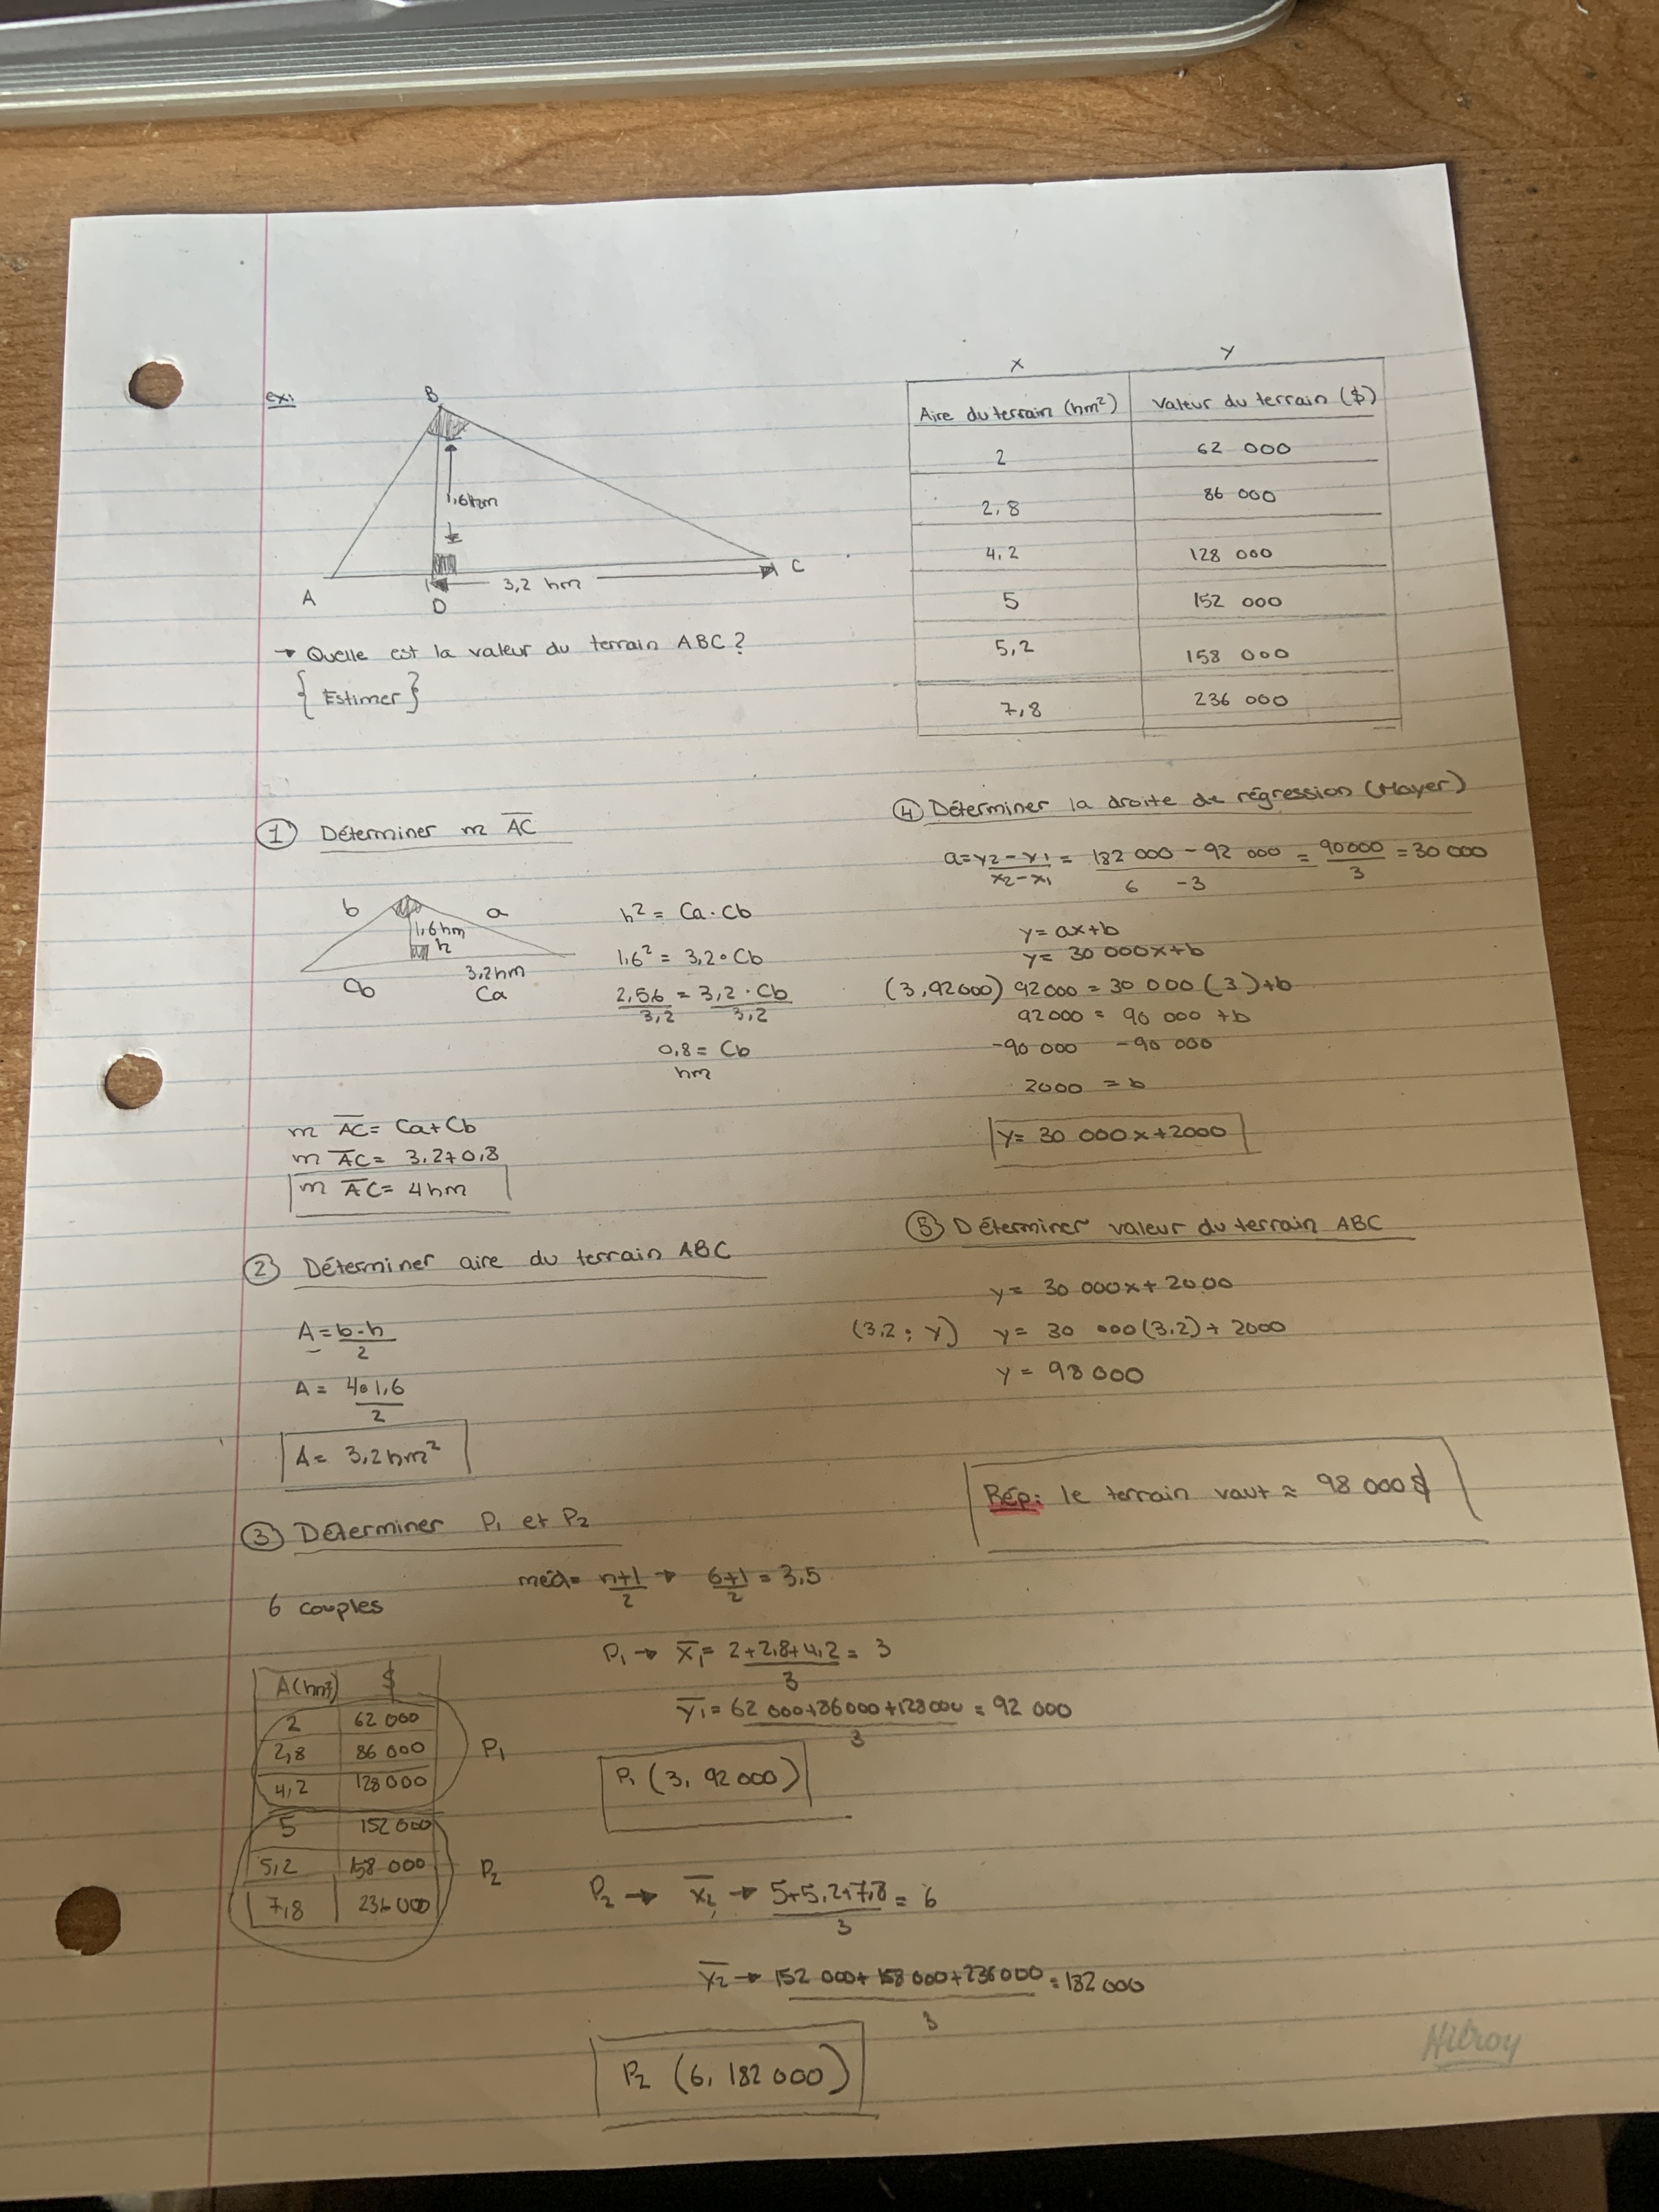 ex:
B
1,6hm
A
D
3,2 hm
C
→ Quelle est la valeur du terrain ABC?
{ Estimer }
X Y
Aire du terrain (hm²) Valeur du terrain ($)
2 62 000
2,8 86 000
4,2 128 000
5 152 000
5,2 158 000
7,8 236 000
① Déterminer m AC
b a
1,6hm
h
3,2hm
Cb Ca
h² = Ca · Cb
1,6² = 3,2 • Cb
2,56 = 3,2 · Cb
3,2 3,2
0,8 = Cb
hm
m AC = Ca+Cb
m AC = 3,2+0,8
m AC = 4hm
② Déterminer aire du terrain ABC
A = b·h
2
A = 4•1,6
2
A = 3,2hm²
③ Déterminer P1 et P2
6 couples
méd= n+1 → 6+1 = 3,5
2 2
A(hm²) $
2 62 000
2,8 86 000
4,2 128 000
P1
5 152 000
5,2 158 000
7,8 236 000
P2
P1 → x̄1 = 2+2,8+4,2 = 3
3
ȳ1 = 62 000+86000+128000 = 92 000
3
P1 (3, 92 000)
P2 → x̄2 → 5+5,2+7,8 = 6
3
ȳ2 → 152 000+158 000+236000 = 182 000
3
P2 (6, 182 000)
④ Déterminer la droite de régression (Mayer)
a = y2 - y1 = 182 000 - 92 000 = 90000 = 30 000
x2 - x1 6 - 3 3
y = ax+b
y = 30 000x+b
(3,92000) 92000 = 30 000 (3)+b
92000 = 90 000 +b
-90 000 -90 000
2000 = b
y = 30 000x+2000
⑤ Déterminer valeur du terrain ABC
y = 30 000x+2000
(3,2 ; y) y = 30 000(3,2)+ 2000
y = 98 000
Rép: le terrain vaut ≈ 98 000$
Hilroy